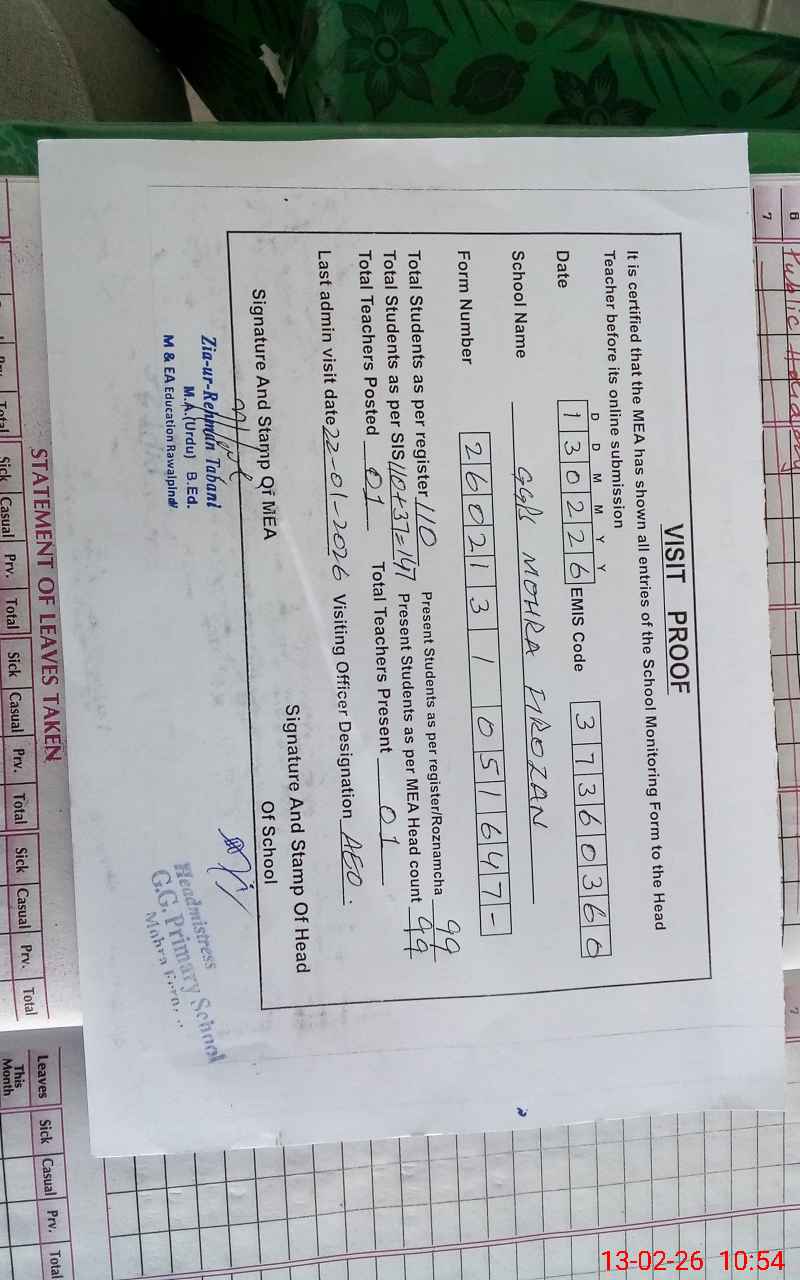 VISIT PROOF
It is certified that the MEA has shown all entries of the School Monitoring Form to the Head
Teacher before its online submission
D D M M Y Y
Date 130226 EMIS Code 37360360
School Name GGPS MOHRA FIROZAN
Form Number 260213 1 051647-
Total Students as per register 110 Present Students as per register/Roznamcha 99
Total Students as per SIS 110+37=147 Present Students as per MEA Head count 99
Total Teachers Posted 01 Total Teachers Present 01
Last admin visit date 22-01-2026 Visiting Officer Designation AEO.
Signature And Stamp Of MEA
Signature And Stamp Of Head
Of School
Zia-ur-Rehman Tabani
M.A.(Urdu) B.Ed.
M & EA Education Rawalpindi
Headmistress
G.G. Primary School
Mohra
6
7
Public Holiday
7
STATEMENT OF LEAVES TAKEN
Total Sick Casual Prv. Total Sick Casual Prv. Total Sick Casual Prv. Total
Leaves This Month Sick Casual Prv. Total
13-02-26 10:54